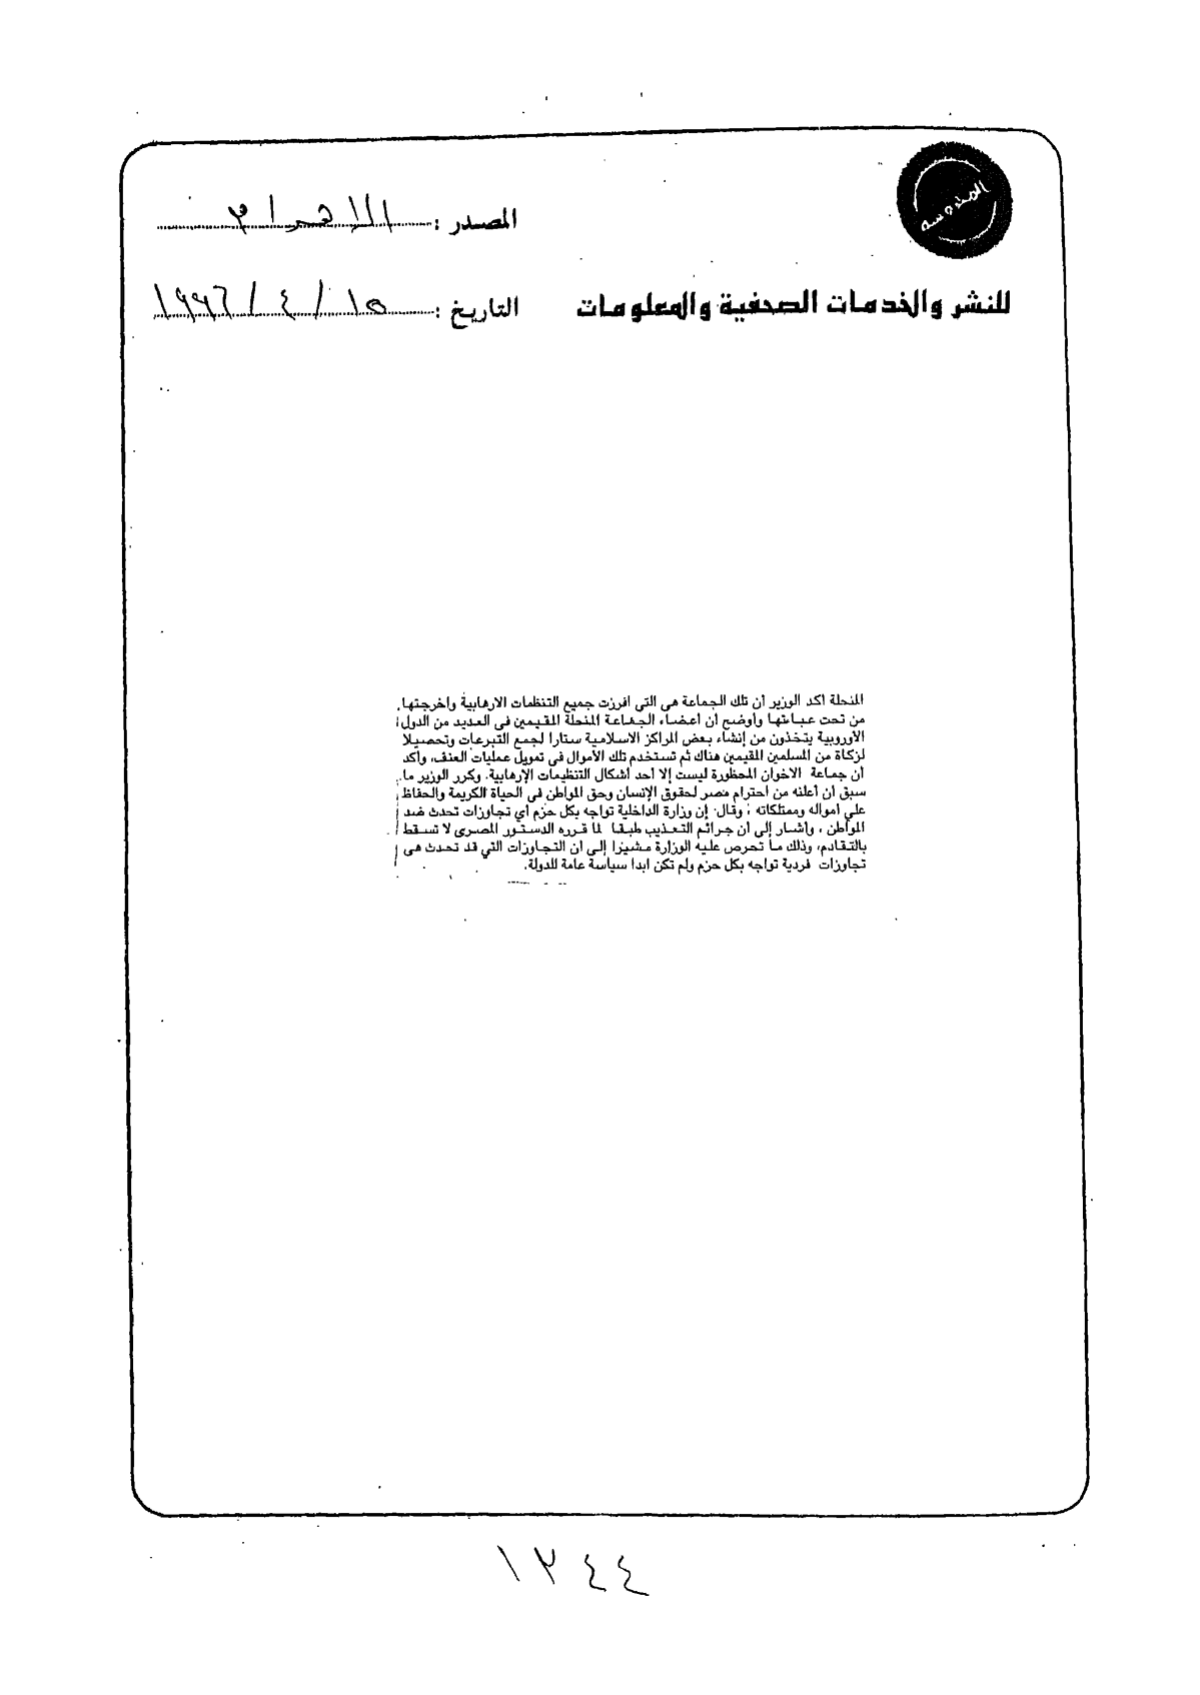 المصدر : الاهرام
للنشر والخدمات الصحفية والمعلومات
التاريخ : ١٥ / ٤ / ١٩٩٦
المنحلة أكد الوزير أن تلك الجماعة هى التى أفرزت جميع التنظمات الارهابية وأخرجتها
من تحت عباءتها وأوضح أن أعضاء الجماعة المنحلة المقيمين فى العديد من الدول
الأوروبية يتخذون من إنشاء بعض المراكز الاسلامية ستارا لجمع التبرعات وتحصيلا
لزكاة من المسلمين المقيمين هناك ثم تستخدم تلك الأموال فى تمويل عمليات العنف، وأكد
أن جماعة الاخوان المحظورة ليست إلا أحد أشكال التنظيمات الإرهابية. وكرر الوزير ما
سبق أن أعلنه من احترام مصر لحقوق الإنسان وحق المواطن فى الحياة الكريمة والحفاظ
على أمواله وممتلكاته ، وقال: إن وزارة الداخلية تواجه بكل حزم أي تجاوزات تحدث ضد
المواطن ، وأشار إلى أن جرائم التعذيب طبقا لما قرره الدستور المصرى لا تسقط
بالتقادم، وذلك ما تحرص عليه الوزارة مشيرا إلى أن التجاوزات التي قد تحدث هى
تجاوزات فردية تواجه بكل حزم ولم تكن أبدا سياسة عامة للدولة.
١٢٤٤